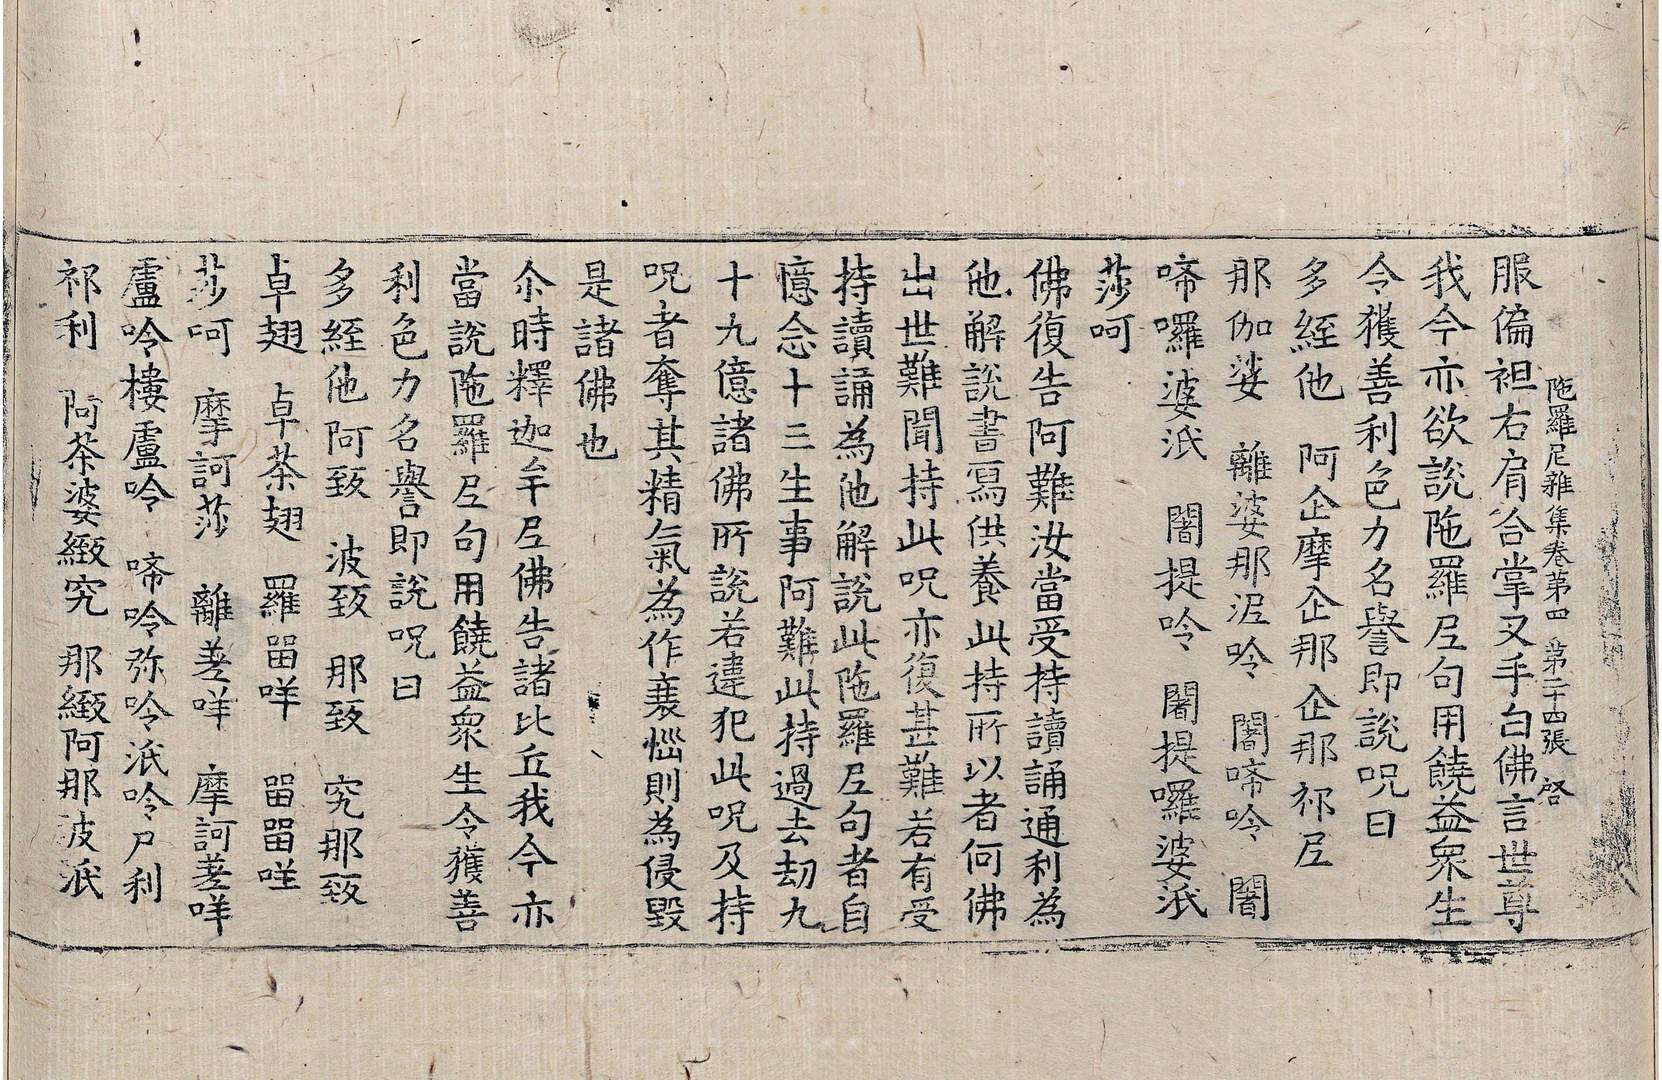 陁羅尼雜集卷第四 第二十四張 啓
服偏袒右肩合掌叉手白佛言世尊
我今亦欲說陁羅尼句用饒益衆生
令獲善利色力名譽即說呪曰
多緻他 阿企摩企那企那祁尼
那伽婆 離婆那泥唥 闍啼唥 闍
啼囉婆泜 闍提唥 闍提囉婆泜
莎呵
佛復告阿難汝當受持讀誦通利為
他解說書寫供養此持所以者何佛
出世難聞持此呪亦復甚難若有受
持讀誦為他解說此陁羅尼句者自
憶念十三生事阿難此持過去劫九
十九億諸佛所說若違犯此呪及持
呪者奪其精氣為作衰惱則為侵毀
是諸佛也
尒時釋迦牟尼佛告諸比丘我今亦
當說陁羅尼句用饒益衆生令獲善
利色力名譽即說呪曰
多絰他 阿致 波致 那致 究那致
卓翅 卓茶翅 羅𠱾咩 𠱾𠱾咩
莎呵 摩訶莎 離差咩 摩訶差咩
盧唥樓盧唥 啼唥弥唥泜唥尸利
祁利 阿茶婆緻究 那緻阿那波泜